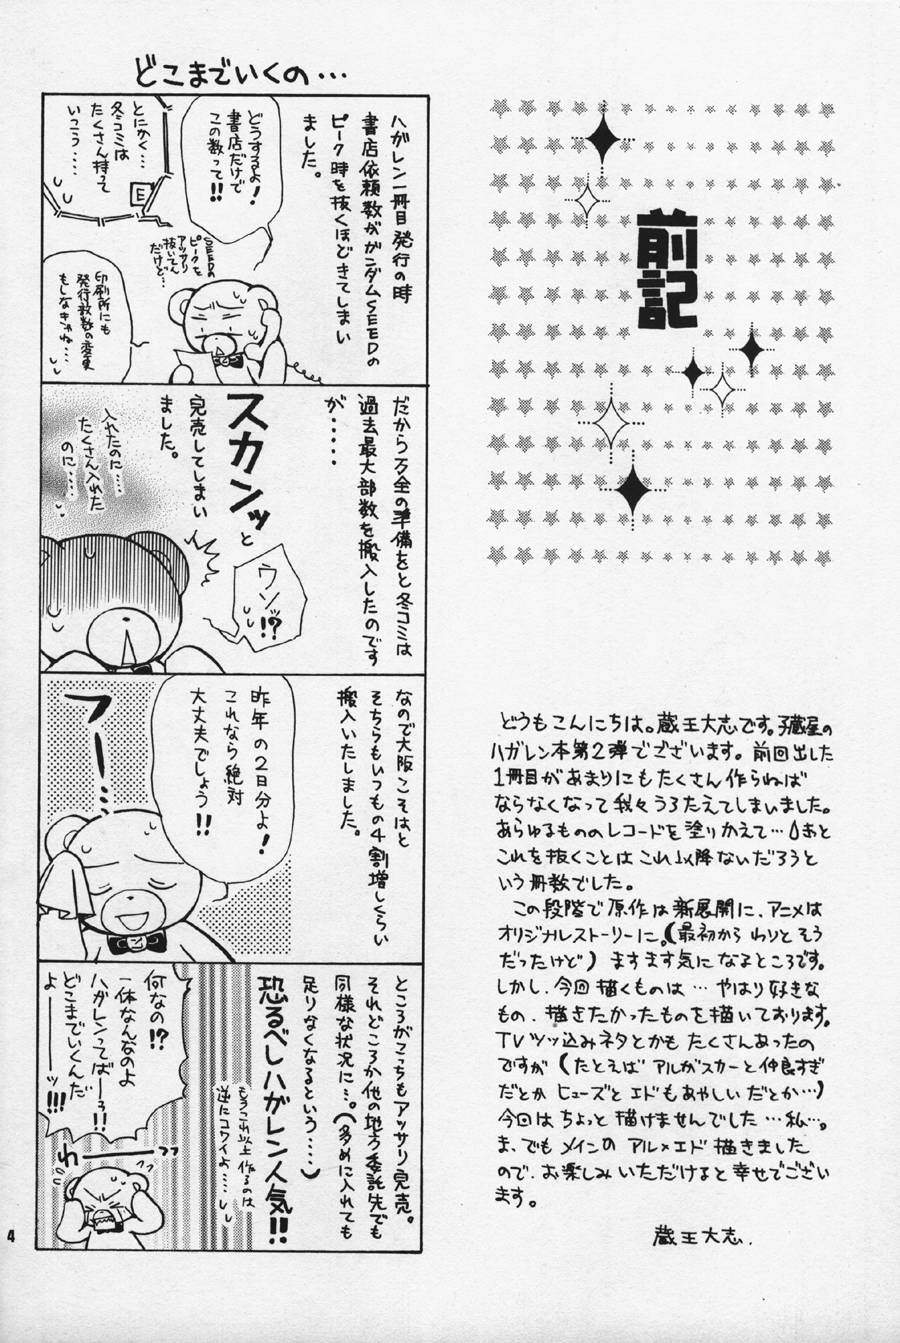 前記
どうもこんにちは。蔵王大志です。子蔵屋の
ハガレン本第2弾でございます。前回出した
1冊目があまりにもたくさん作らねば
ならなくなって我々うろたえてしまいました。
あらゆるもののレコードを塗りかえて…
これを抜くことはこれ以降ないだろうと
いう冊数でした。
この段階で原作は新展開に、アニメは
オリジナルストーリーに。(最初からわりとそう
だったけど)ますます気になるところです。
しかし、今回描くものは…やはり好きな
もの、描きたかったものを描いております。
TVツッ込みネタとかもたくさんあったの
ですが(たとえばアルがスカーと仲良すぎ
だとかヒューズとエドもあやしいだとか…)
今回はちょっと描けませんでした…私…。
ま、でもメインのアル×エド描きました
ので、お楽しみいただけると幸せでござい
ます。
蔵王大志.
どこまでいくの…
ハガレン一冊目発行の時
書店依頼数がガンダムSEEDの
ピーク時を抜くほどきてしまい
ました。
どうするよ!
書店だけで
この数って!!
とにかく…
冬コミは
たくさん持って
いこう……
E
SEEDの
ピークを
アッサリ
抜いてん
だけど…
印刷所にも
発行部数の変更
もしなきゃね…
だから万全の準備をと冬コミは
過去最大部数を搬入したのです
が……
スカンッと
完売してしまい
ました。
ウソッ!?
入れたのに……
たくさん入れた
のに……
なので大阪こそはと
そちらもいつもの4割増しくらい
搬入いたしました。
昨年の2日分よ!
これなら絶対
大丈夫でしょう!!
フー…
ところがこっちもアッサリ完売。
それどころか他の地方委託先でも
同様な状況に…。(多めに入れても
足りなくなるという……)
恐るべしハガレン人気!!
もうこれ以上作るのは
逆にコワイよ……
何なの!?
一体なんなのよ
ハガレンってばーっ!!
どこまでいくんだ
よーーーッ!!!
わーーーっっ
4